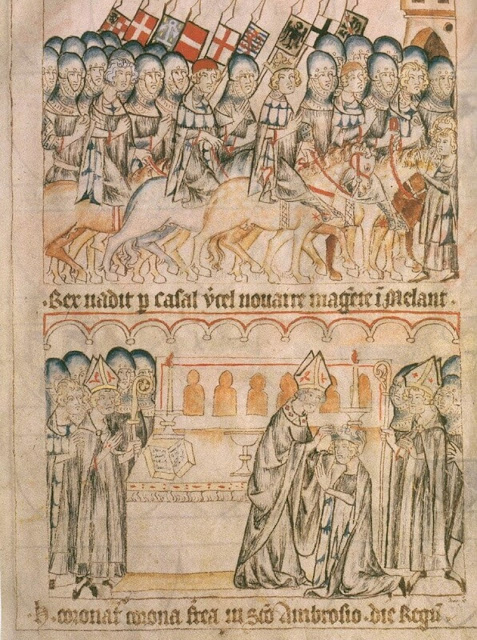 · Rex uadit p casal v̓cel nouairre magēte ī Melant ·
h · coronat̓ corona frēa in Scō Ambrosio · die Regū ·